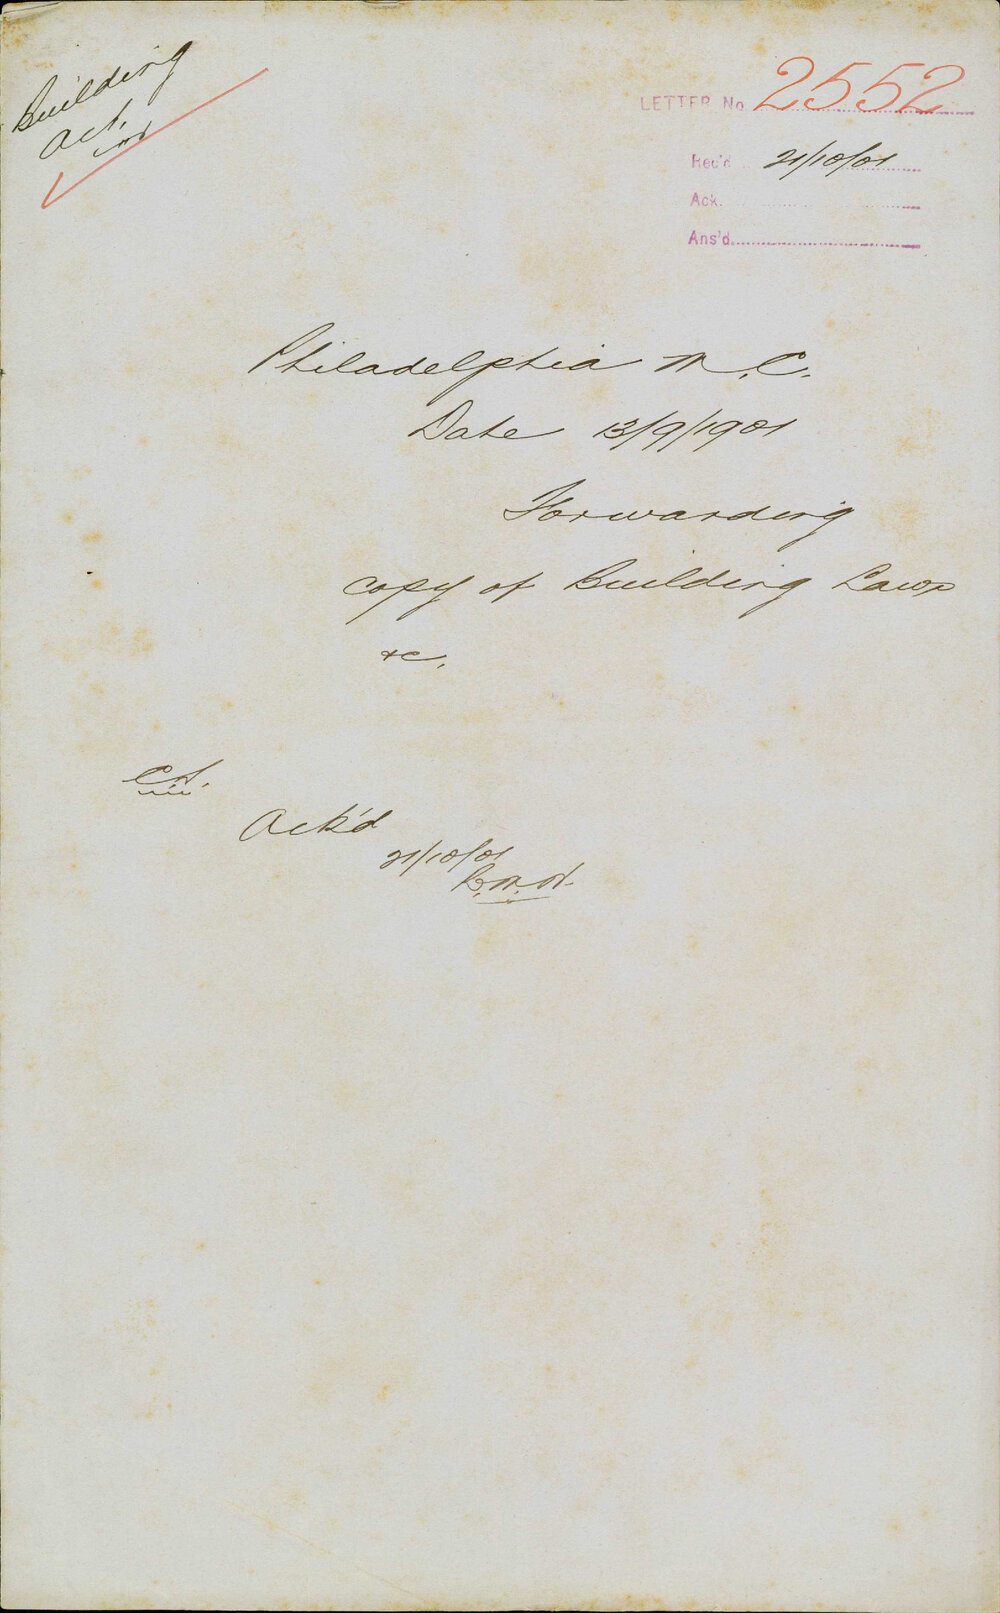 Building
Act.
LETTER No 2552
Rec'd 21/10/01
Ack.
Ans'd
Philadelphia M.C.
Date 13/9/1901
Forwarding
copy of Building Laws
&c.
Ack'd
21/10/01